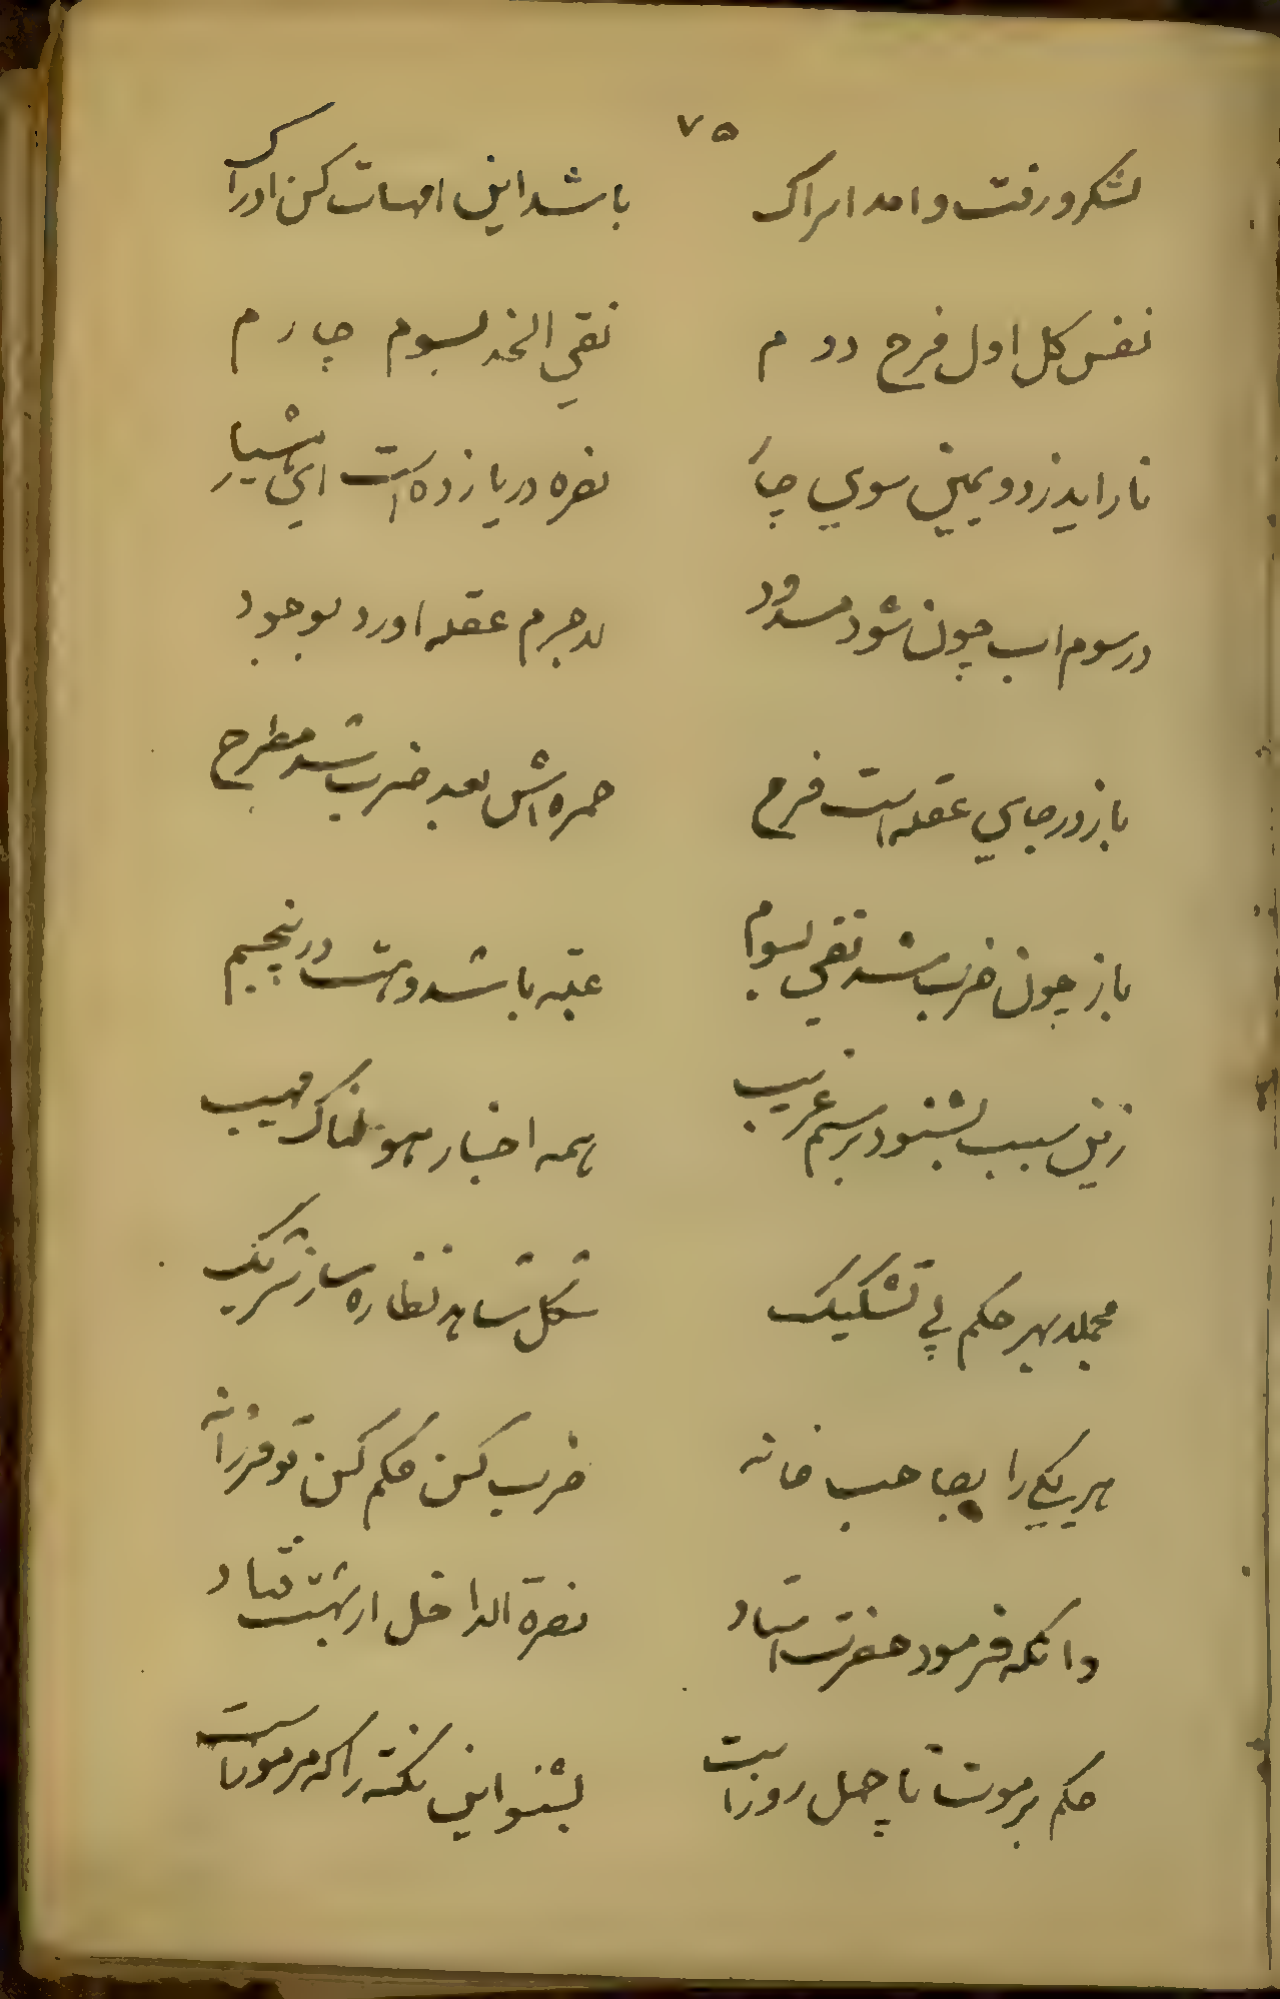 ۷۵
لشکر و رفت و امد ادراک باشد این امهات کن ادراک
نفس کل اول فرح دوم نقي الخد لسوم چارم
نار اید زد و یمین سوي چار نصره در یازده است اي هشیار
در سوم اب چون شود مسدود لاجرم عقله اورد بوجود
باز در جاي عقله است فرح حمره اش بعد ضرب شد مطرح
باز چون ضرب شد نقي بسوم عتبه باشد و هست در پنجم
زین سبب بشنود برسم غریب همه اخبار هولناک مهیب
مجملا بهر حکم پي تشکیک شکل شاهد نظاره ساز شریک
هر یکي را بصاحب خانه ضرب کن حکم کن تو فرزانه
وانکه فرمود حضرت استاد نصرة الداخل ار بهشت فتاد
حکم بر موت تا چهل روز است بشنو این نکته را که مرموز است